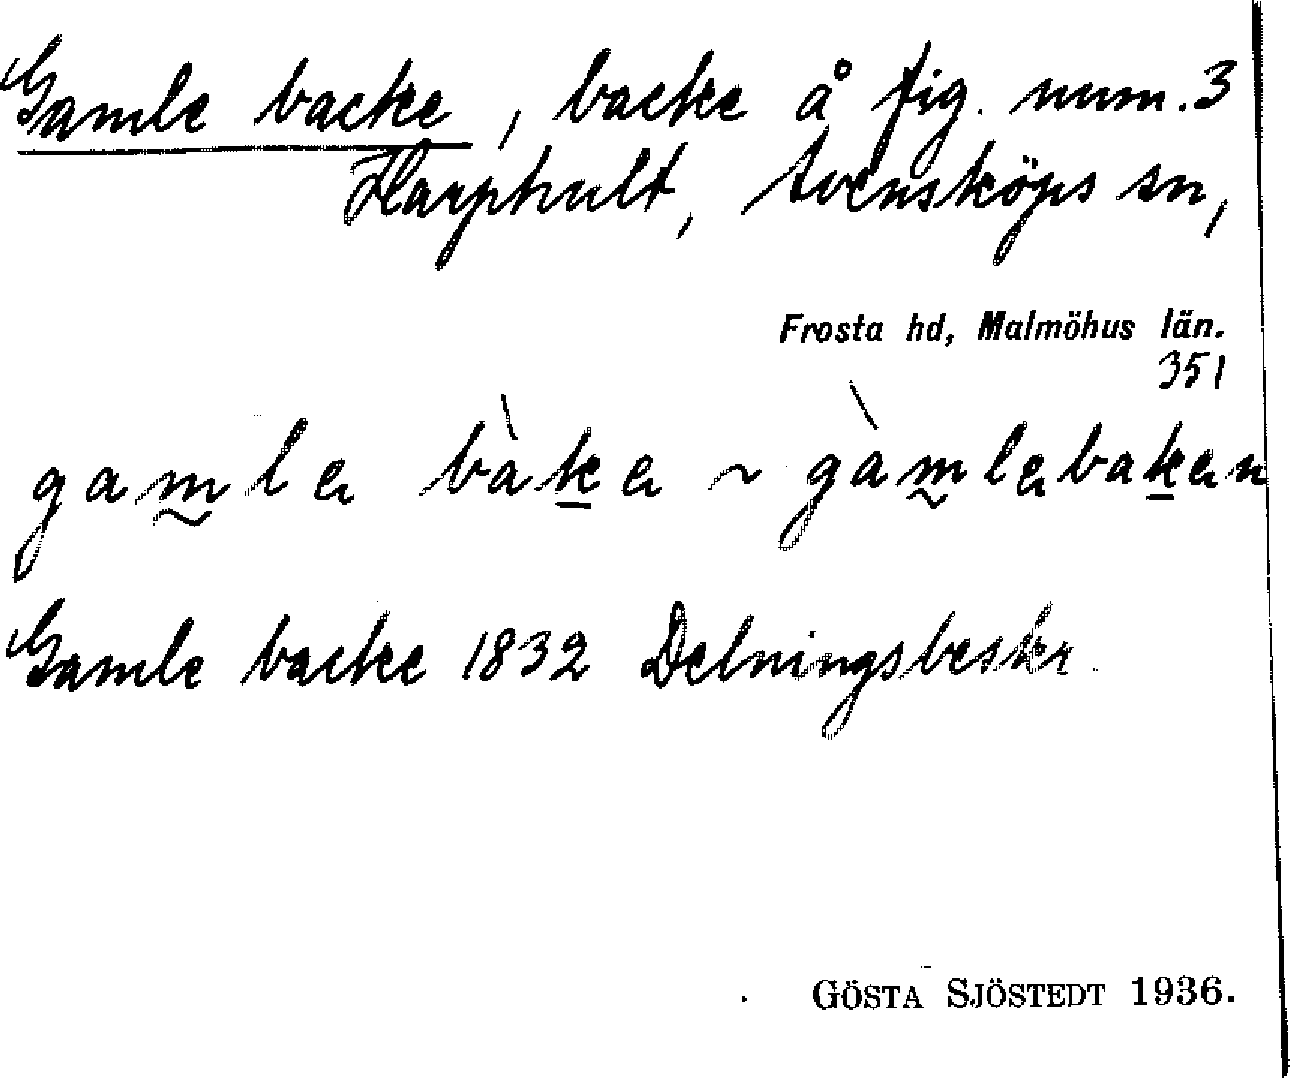 Gamle backe, backe å fig. num. 3
Harphult, Svensköps sn,
Frosta hd, Malmöhus län.
351
gamle bàke ~ gàmlebaken
Gamle backe 1832 Delningsbeskr.
GÖSTA SJÖSTEDT 1936.